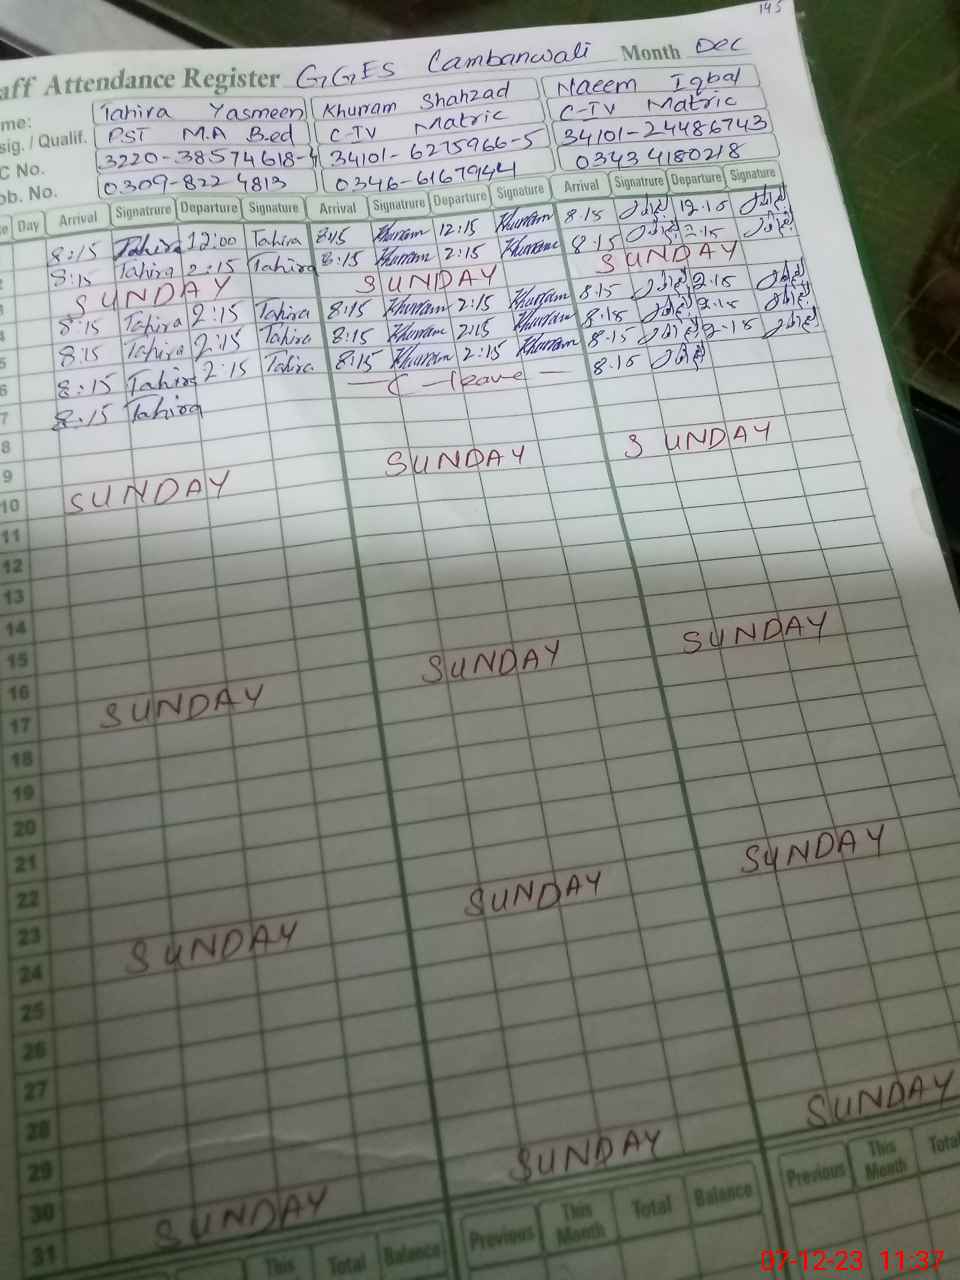 145
aff Attendance Register GGES Cambanwali Month Dec
me: Tahira Yasmeen Khurram Shahzad Naeem Iqbal
sig. / Qualif. PST M.A B.ed C-IV Matric C-IV Matric
C No. 3220-38574618-4 34101-6275966-5 34101-24486743
ob. No. 0309-822 4813 0346-6167944 03434180218
e Day Arrival Signatrure Departure Signature Arrival Signatrure Departure Signature Arrival Signatrure Departure Signature
8:15 Tahira 12:00 Tahira 8:15 Khurram 12:15 Khurram 8:15 12:15
2 8:15 Tahira 2:15 Tahira 8:15 Khurram 2:15 Khurram 8:15 2:15
3 SUNDAY SUNDAY SUNDAY
4 8:15 Tahira 2:15 Tahira 8:15 Khurram 2:15 Khurram 8:15 2:15
5 8:15 Tahira 2:15 Tahira 8:15 Khurram 2:15 Khurram 8:15 2:15
6 8:15 Tahira 2:15 Tahira 8:15 Khurram 2:15 Khurram 8:15 2:15
7 8:15 Tahira C-leave 8:15
8
9
10 SUNDAY SUNDAY SUNDAY
11
12
13
14
15
16
17 SUNDAY SUNDAY SUNDAY
18
19
20
21
22
23
24 SUNDAY SUNDAY SUNDAY
25
26
27
28
29
30
31 SUNDAY SUNDAY SUNDAY
This Total Balance Previous This Month Total Balance Previous This Month Total
07-12-23 11:37